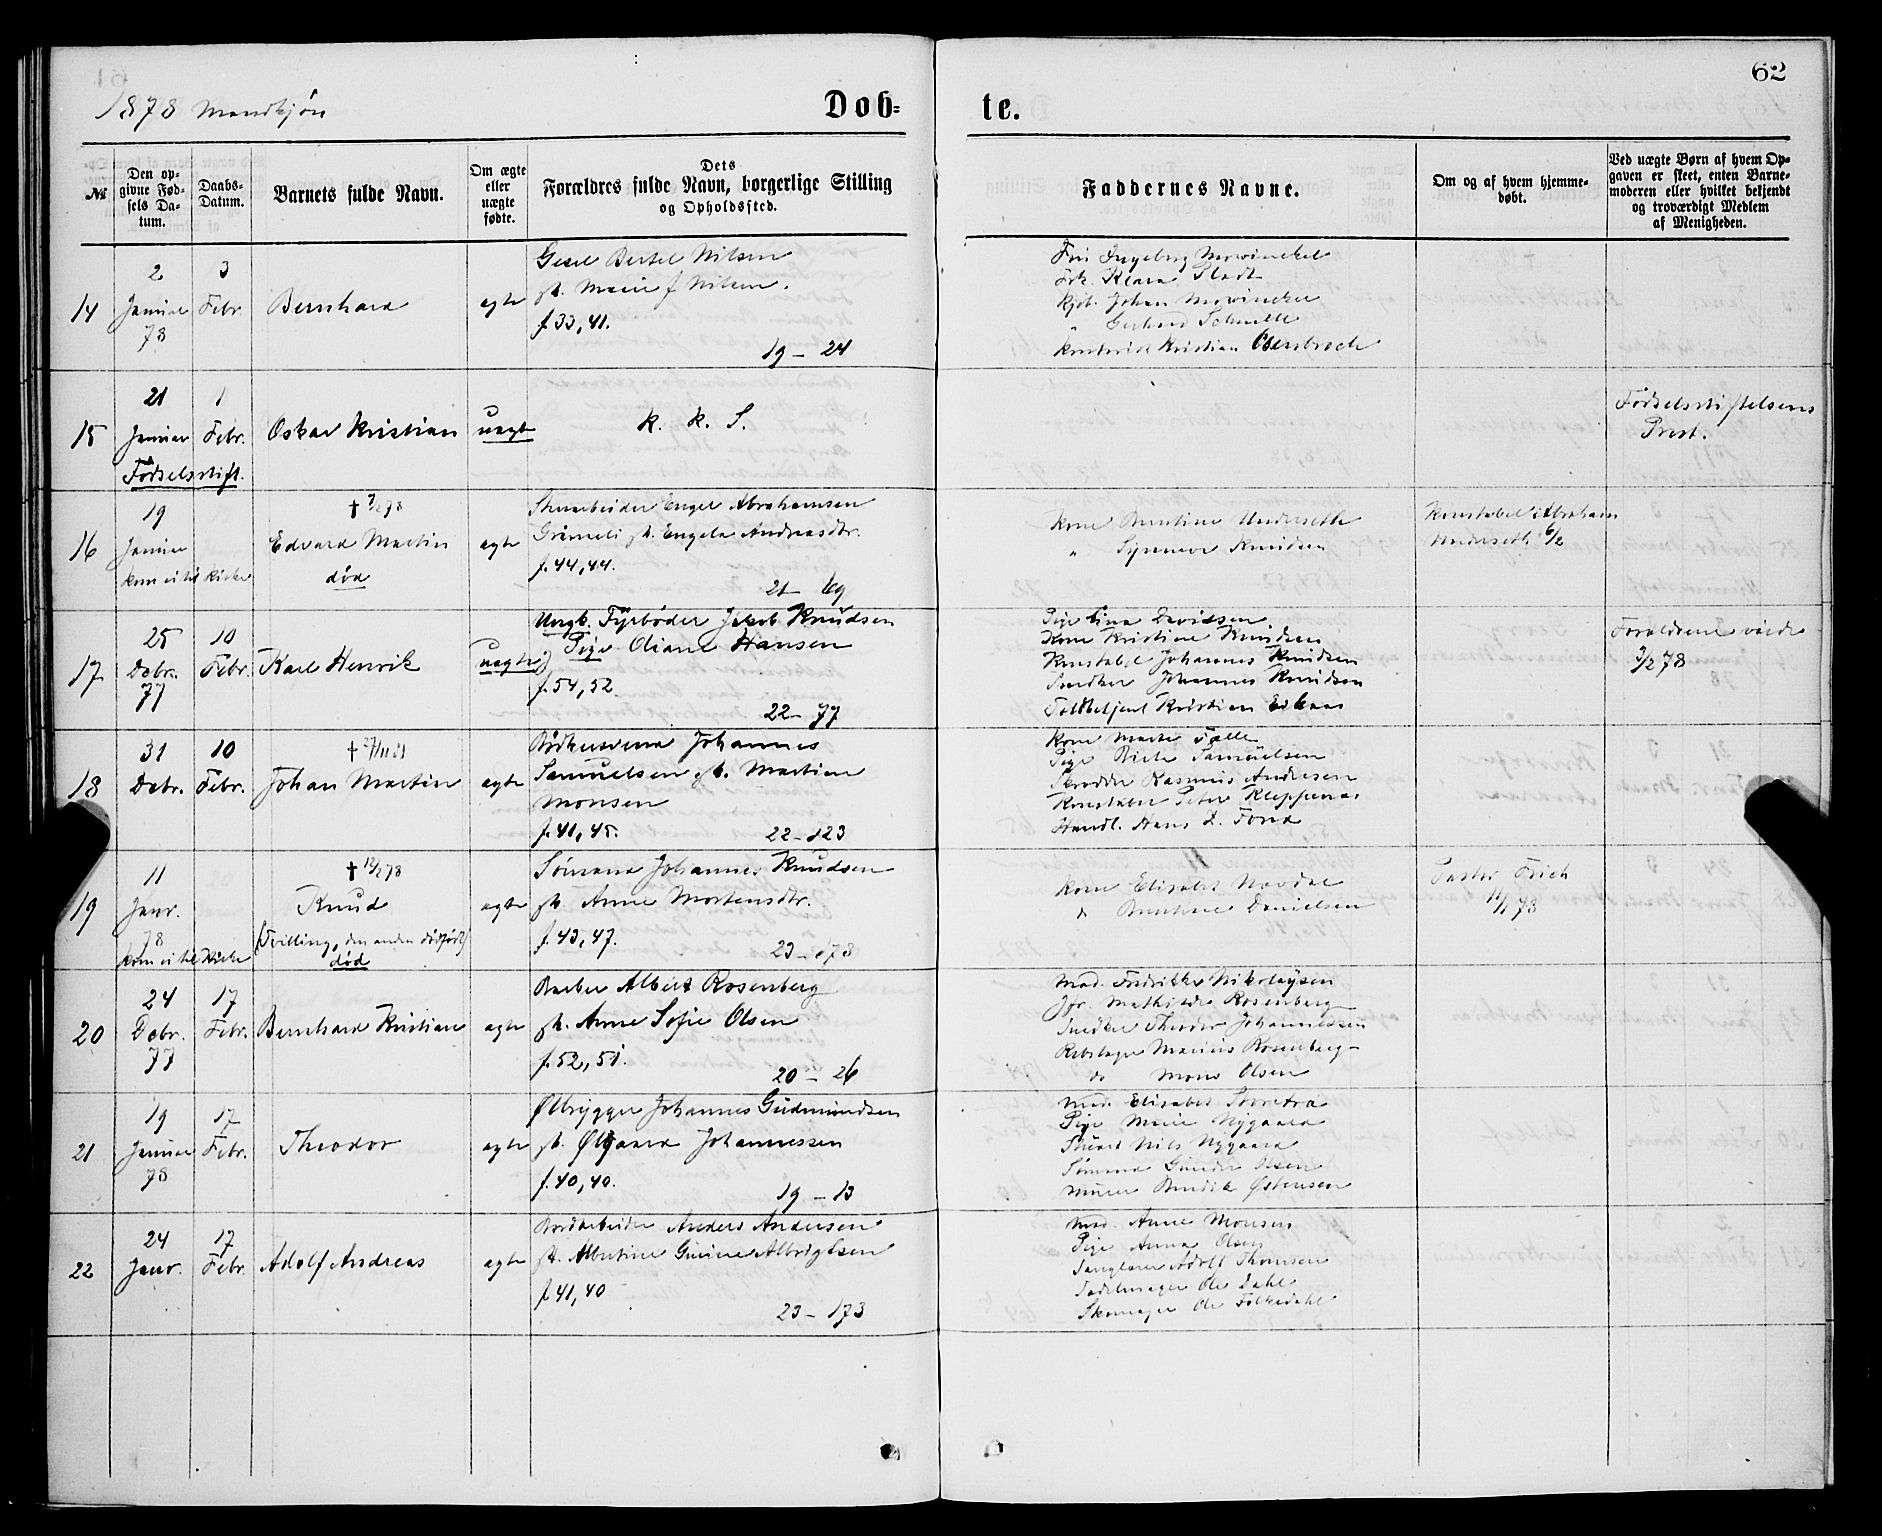 62
1878 Mandkjøn
Døb-
te.
№
Den opgivne Fødsels Datum.
Daabs-Datum.
Barnets fulde Navn.
Om ægte eller uægte fødte.
Dets Forældres fulde Navn, borgerlige Stilling og Opholdssted.
Faddernes Navne.
Om og af hvem hjemmedøbt.
Ved uægte Børn af hvem Opgaven er skeet, enten Barnemoderen eller hvilket bekjendt og troværdigt Medlem af Menigheden.
14
2 Januar 78
3 Febr
Bernhard
ægte
Bertel Nilsen
gb. Marie f Nilsen.
f. 33, 41.
19 - 24
Ingeborg Mowinckel
Frk. Klara
Kjøb. Johan Mowinckel
" Gerhard
Kristian
15
21 Januar
1 Febr.
Fødselsstift.
Oskar Kristian
uægte
K. K. S.
Fødselsstiftelsens
Prest.
16
19 Januar
kom ei til Kirke
† 7/2 78
Edvard Martin
død
ægte
Engel Abrahamsen
gb. Engela Andreasdtr.
f. 44, 44.
21 - 69
Kone Berntine Underseth
" Synneve Knudsen
Konstabel Abraham
Underseth 6/2
17
25 Debr. 77
10 Febr.
Karl Henrik
uægte
Ungk. Fyrbøder Jakob Knudsen
Pige Oliane Hansen
f. 54, 52.
22 - 77
Pige Lina Davidsen
Kone Kristine Knudsen
Konstabel Johannes Knudsen
Snedker Johannes Knudsen
Toldbetjent Kristian
Forældrene
3/2 78
18
31 Debr.
10 Febr.
† 27/11 81
Johan Martin
ægte
Bødkersvend Johannes
Samuelsen gb. Martine
Monsen
f. 41, 45.
22 - 123
Kone Marte
Pige Samuelsen
Skrædder Rasmus Andresen
Konstabel Peter Kleppenes
Handl. Hans L.
19
11 Janr. 78
kom ei til Kirke
† 12/2 78
Knud
(Tvilling, den anden dødfødt)
død
ægte
Sømand Johannes Knudsen
gb. Anne Mortensdtr.
f. 43, 47.
23 - 178
Kone Elisabet Navdal
" Berntine Danielsen
Pastor Frich
20
24 Debr. 77
17 Febr.
Bernhard Kristian
ægte
Barber Albert Rosenberg
gb. Anne Sofie Olsen
f. 52, 51.
20 - 26
Mad. Fredrikke Nikolaysen
Jfr. Mathilde Rosenberg
Snedker Theodor Johannessen
Rebslager Marius Rosenberg
do Mons Olsen
21
19 Januar 78
17 Febr.
Theodor
ægte
Ølbrygger Johannes Gudmundsen
gb. Ølegaard Johannessen
f. 40, 40.
19 - 13
Mad. Elisabet
Pige Marie Nygaard
Nils Nygaard
Sømand Gunder Olsen
Murer Bendik Østensen
22
24 Janr.
17 Febr.
Adolf Andreas
ægte
Anders Andersen
gb. Albertine Gurine Albrigtsen
f. 41, 40
23 - 173
Mad. Anne Monsen
Pige Anna Olsen
Adolf Thomsen
Sadelmager Ole Dahl
Skomager Ole Folkedahl